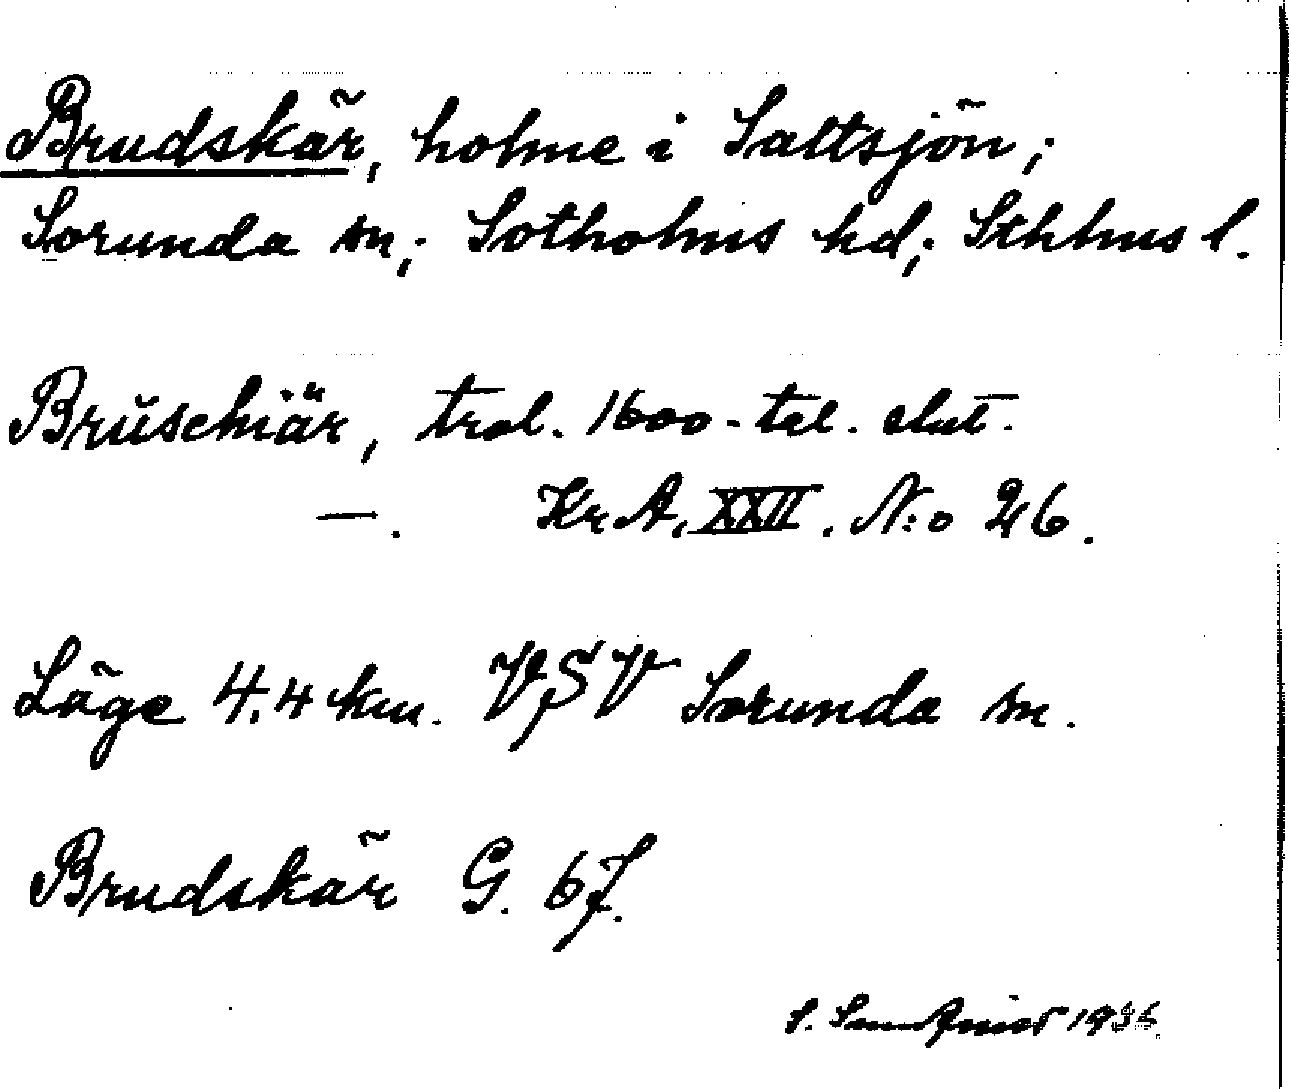 Brudskär, holme i Saltsjön;
Sorunda sn; Sotholms hd; Sthlms l.
Brŭschiär, trol. 1600-tal. slut.
—. Kr A. XXII. N:o 26.
Läge 4.4 km. VSV Sorunda sn.
Brudskär G. 67.
S. 1936